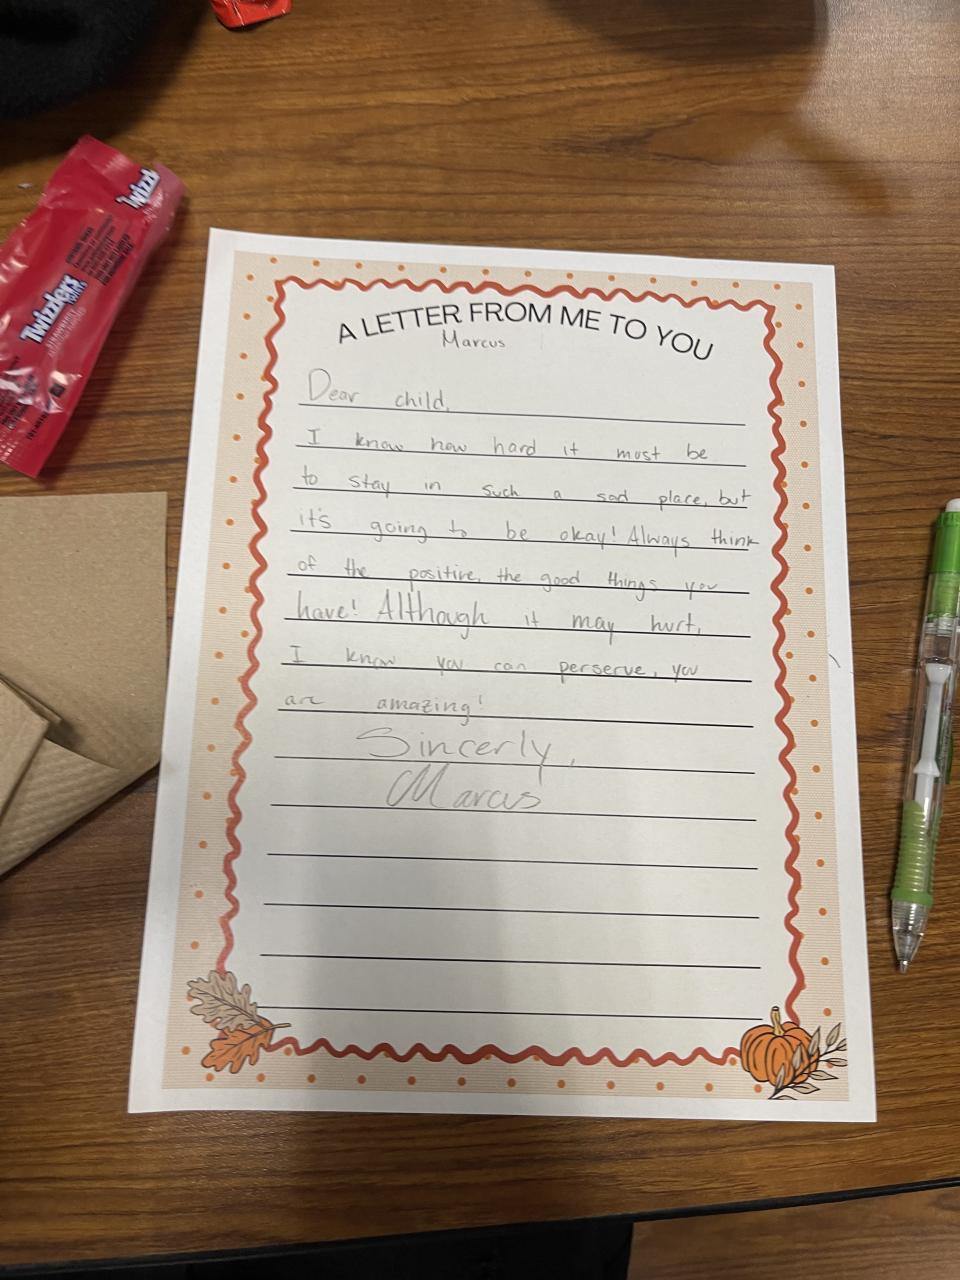 Twizzl
Twizzlers
TWISTS
STRAWBERRY
A LETTER FROM ME TO YOU
Marcus
Dear child,
I know how hard it must be
to stay in such a sad place, but
it's going to be okay! Always think
of the positive, the good things you
have! Although it may hurt,
I know you can perserve, you
are amazing!
Sincerly,
Marcus